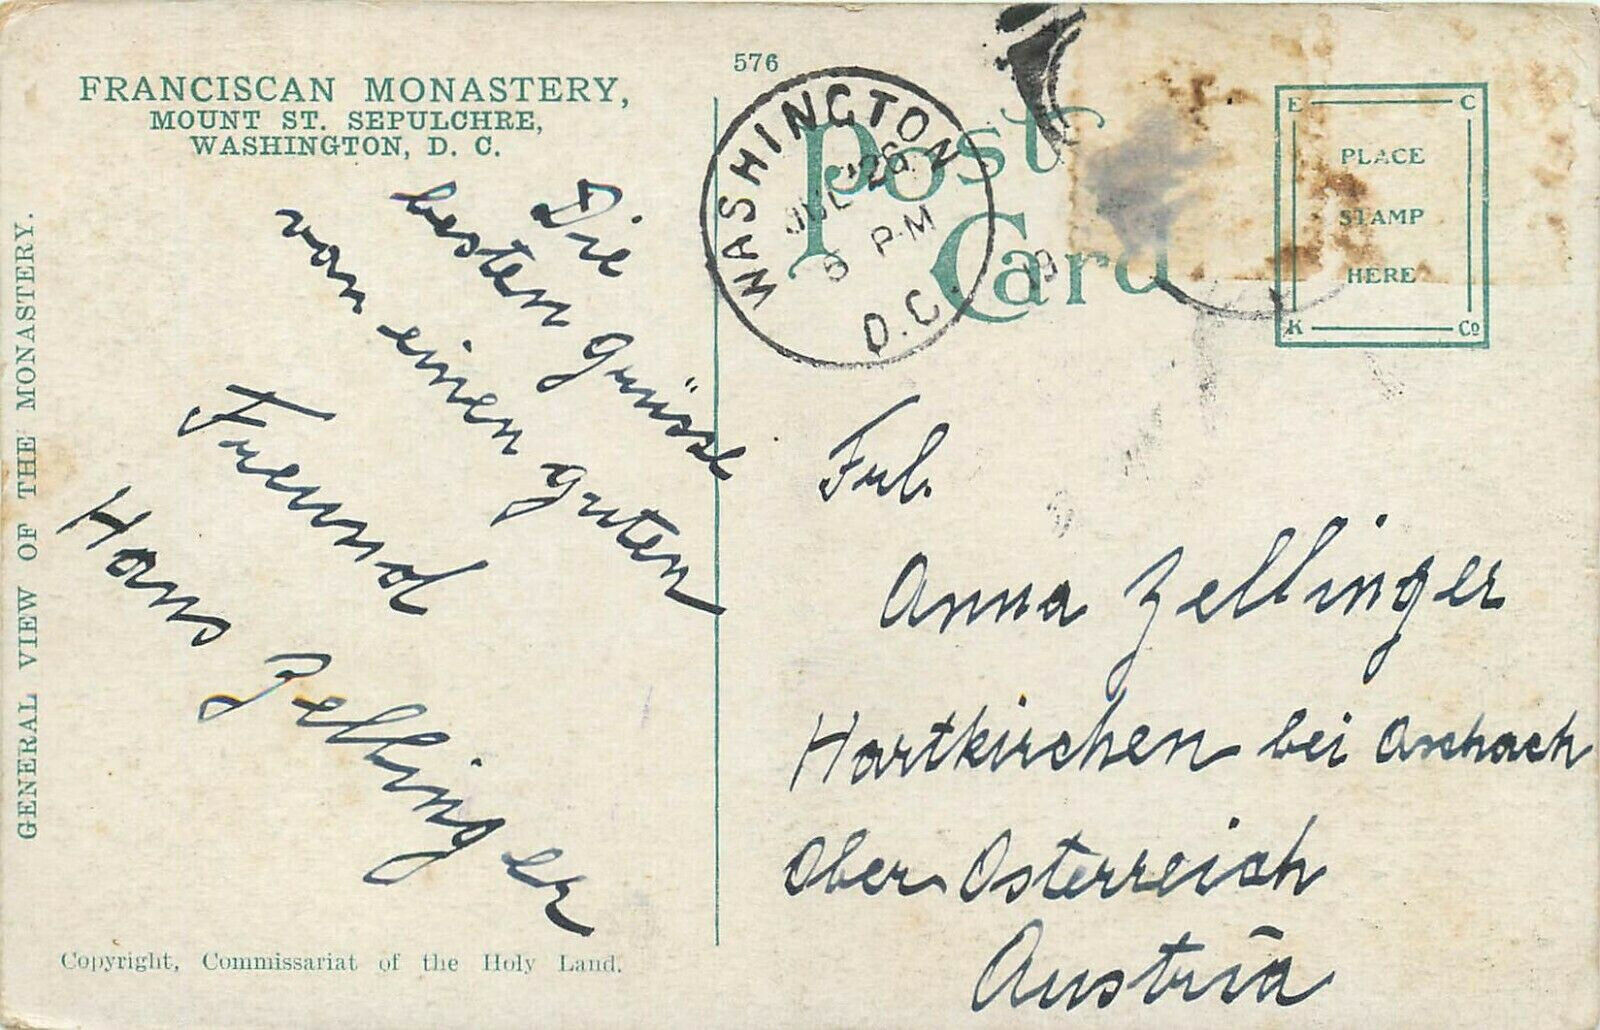 FRANCISCAN MONASTERY,
MOUNT ST. SEPULCHRE,
WASHINGTON, D. C.
GENERAL VIEW OF THE MONASTERY.
Die
besten Grüsse
von einen guten
Freund
Hans Zellinger
Copyright, Commissariat of the Holy Land.
576
Post
Card
WASHINGTON
JUL '26
5 PM
D.C.
E C
PLACE
STAMP
HERE
K Co
Frl.
Anna Zellinger
Hartkirchen bei Aschach
Ober Osterreich
Austria